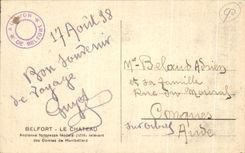 17 Août 38
Bon Souvenir
de voyage
BELFORT - LE CHATEAU
Ancienne forteresse féodale (1226) relevant
des Comtes de Montbéliard
Mr Belaud Adrien
et sa famille
Rue du
Conques
sur Orbiel
Aude